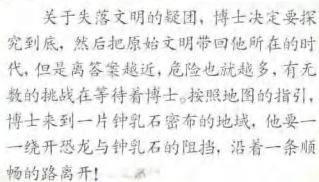 关于失落文明的疑团，博士决定要探
究到底，然后把原始文明带回他所在的时
代，但是离答案越近，危险也就越多，有无
数的挑战在等待着博士。按照地图的指引，
博士来到一片钟乳石密布的地域，他要一
一绕开恐龙与钟乳石的阻挡，沿着一条顺
畅的路离开！